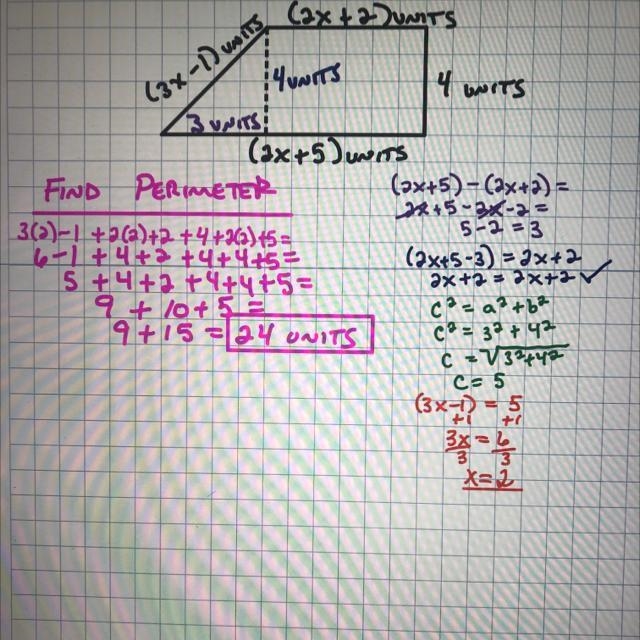 (2x+2) UNITS
(3x-1) UNITS
4 UNITS
4 UNITS
3 UNITS
(2x+5) UNITS
FIND PERIMETER
3(2)-1 +2(2)+2 +4+2(2)+5=
6-1 +4+2 +4+4+5=
5 +4+2 +4+4+5=
9 +10+5 =
9+15 = 24 UNITS
(2x+5)-(2x+2)=
2x+5-2x-2=
5-2=3
(2x+5-3)=2x+2
2x+2=2x+2 ✓
c²=a²+b²
c²=3²+4²
c=√3²+4²
c=5
(3x-1)=5
+1 +1
3x=6
3 3
x=2